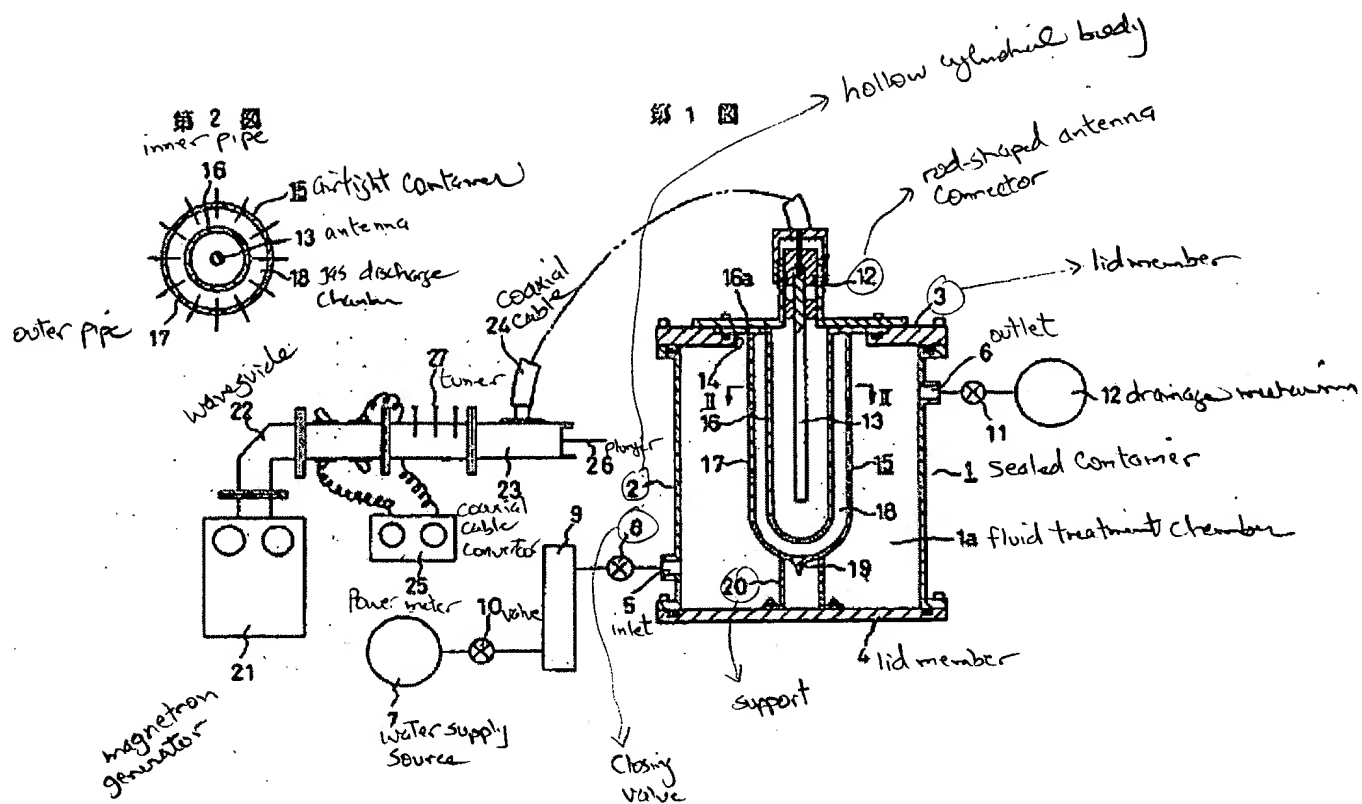 第 2 図
inner pipe
16
15 airtight container
13 antenna
18 gas discharge
chamber
outer pipe
17
第 1 図
hollow cylindrical body
rod-shaped antenna
connector
12
lid member
3
16a
14
II
II
16
13
17
15
18
2
outlet
6
11
12 drainage mechanism
1 sealed container
1a fluid treatment chamber
19
20
5
inlet
4 lid member
support
8
closing
valve
9
10 valve
7
water supply
source
coaxial
cable
24
27
tuner
waveguide
22
23
26 plunger
coaxial
cable
convertor
25
Power meter
21
magnetron
generator